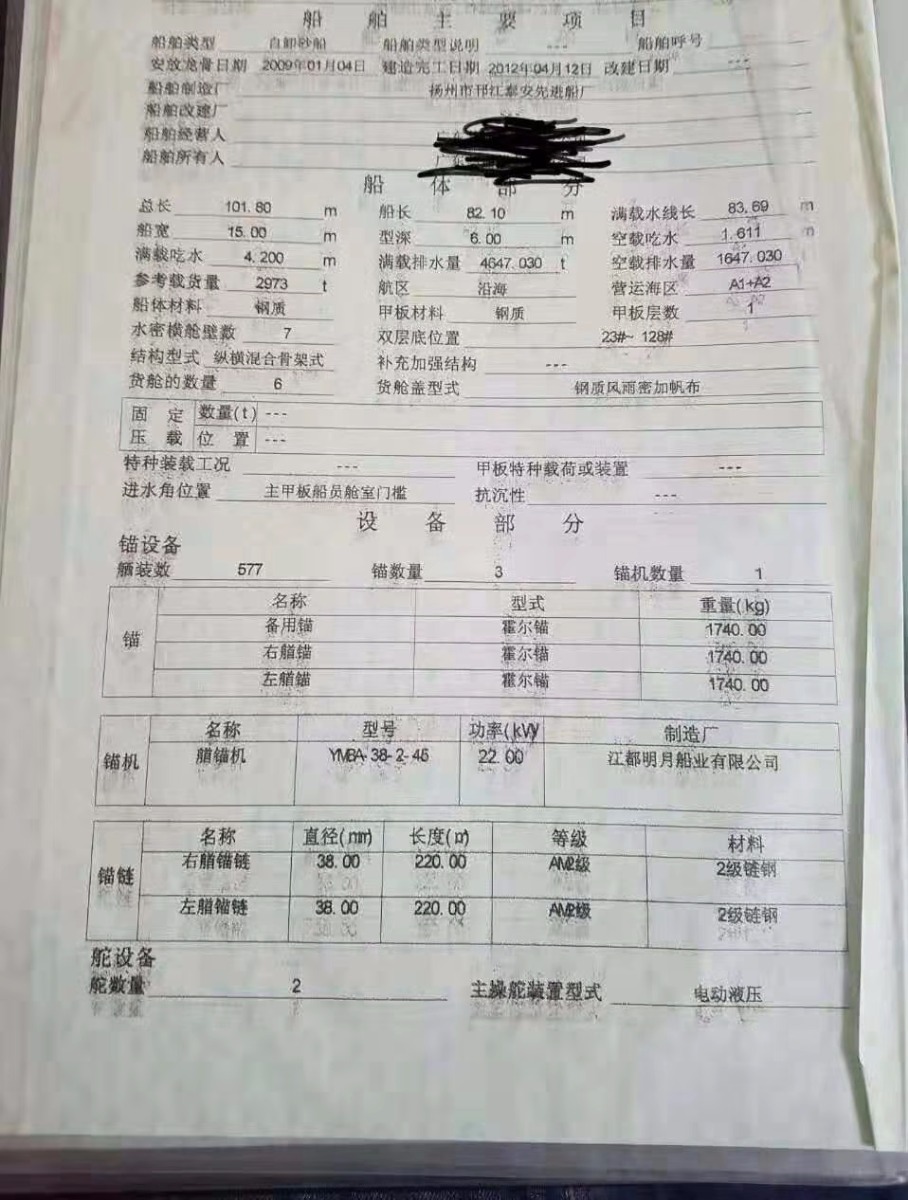 船舶主要项目
船舶类型 自卸砂船 船舶类型说明 --- 船舶呼号
安放龙骨日期 2009年01月04日 建造完工日期 2012年04月12日 改建日期 ---
船舶制造厂 扬州市邗江泰安先进船厂
船舶改建厂
船舶经营人
船舶所有人
船体部分
总长 101.80 m 船长 82.10 m 满载水线长 83.69 m
船宽 15.00 m 型深 6.00 m 空载吃水 1.611 m
满载吃水 4.200 m 满载排水量 4647.030 t 空载排水量 1647.030
参考载货量 2973 t 航区 沿海 营运海区 A1+A2
船体材料 钢质 甲板材料 钢质 甲板层数 1
水密横舱壁数 7 双层底位置 23#~128#
结构型式 纵横混合骨架式 补充加强结构 ---
货舱的数量 6 货舱盖型式 钢质风雨密加帆布
固定压载 数量(t) ---
位置 ---
特种装载工况 --- 甲板特种载荷或装置 ---
进水角位置 主甲板船员舱室门槛 抗沉性 ---
设备部分
锚设备
舾装数 577 锚数量 3 锚机数量 1
锚 名称 型式 重量(kg)
备用锚 霍尔锚 1740.00
右艏锚 霍尔锚 1740.00
左艏锚 霍尔锚 1740.00
锚机 名称 型号 功率(kW) 制造厂
艏锚机 YMBA-38-2-45 22.00 江都明月船业有限公司
锚链 名称 直径(mm) 长度(m) 等级 材料
右艏锚链 38.00 220.00 AM2级 2级链钢
左艏锚链 38.00 220.00 AM2级 2级链钢
舵设备
舵数量 2 主操舵装置型式 电动液压